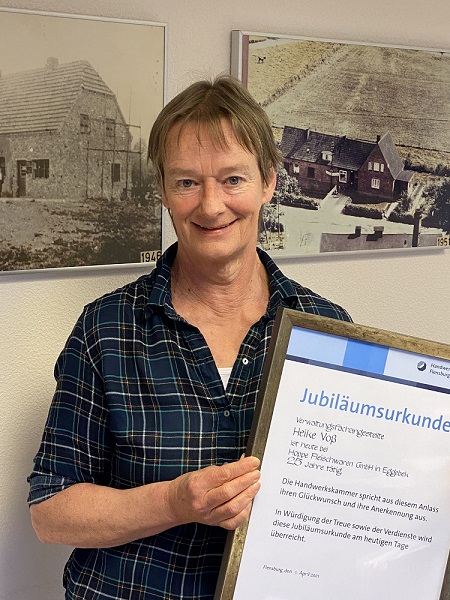 1946
195
Handwerk
Flensburg
Jubiläumsurkunde
Verwaltungsfachangestellte
Heike Voß
ist heute bei
Hoppe Fleischwaren GmbH in Eggebek
25 Jahre tätig
Die Handwerkskammer spricht aus diesem Anlass
ihren Glückwunsch und ihre Anerkennung aus.
In Würdigung der Treue sowie der Verdienste wird
diese Jubiläumsurkunde am heutigen Tage
überreicht.
Flensburg, den 1. April 2021